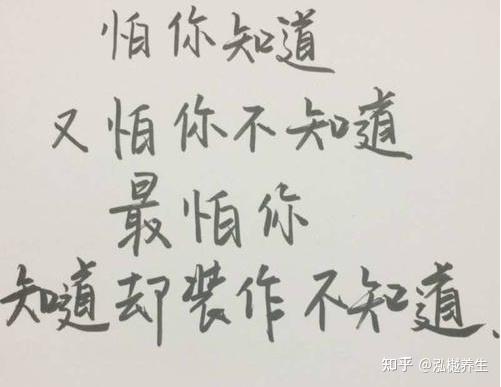 怕你知道
又怕你不知道
最怕你
知道却装作不知道、
知乎 @泓樾养生